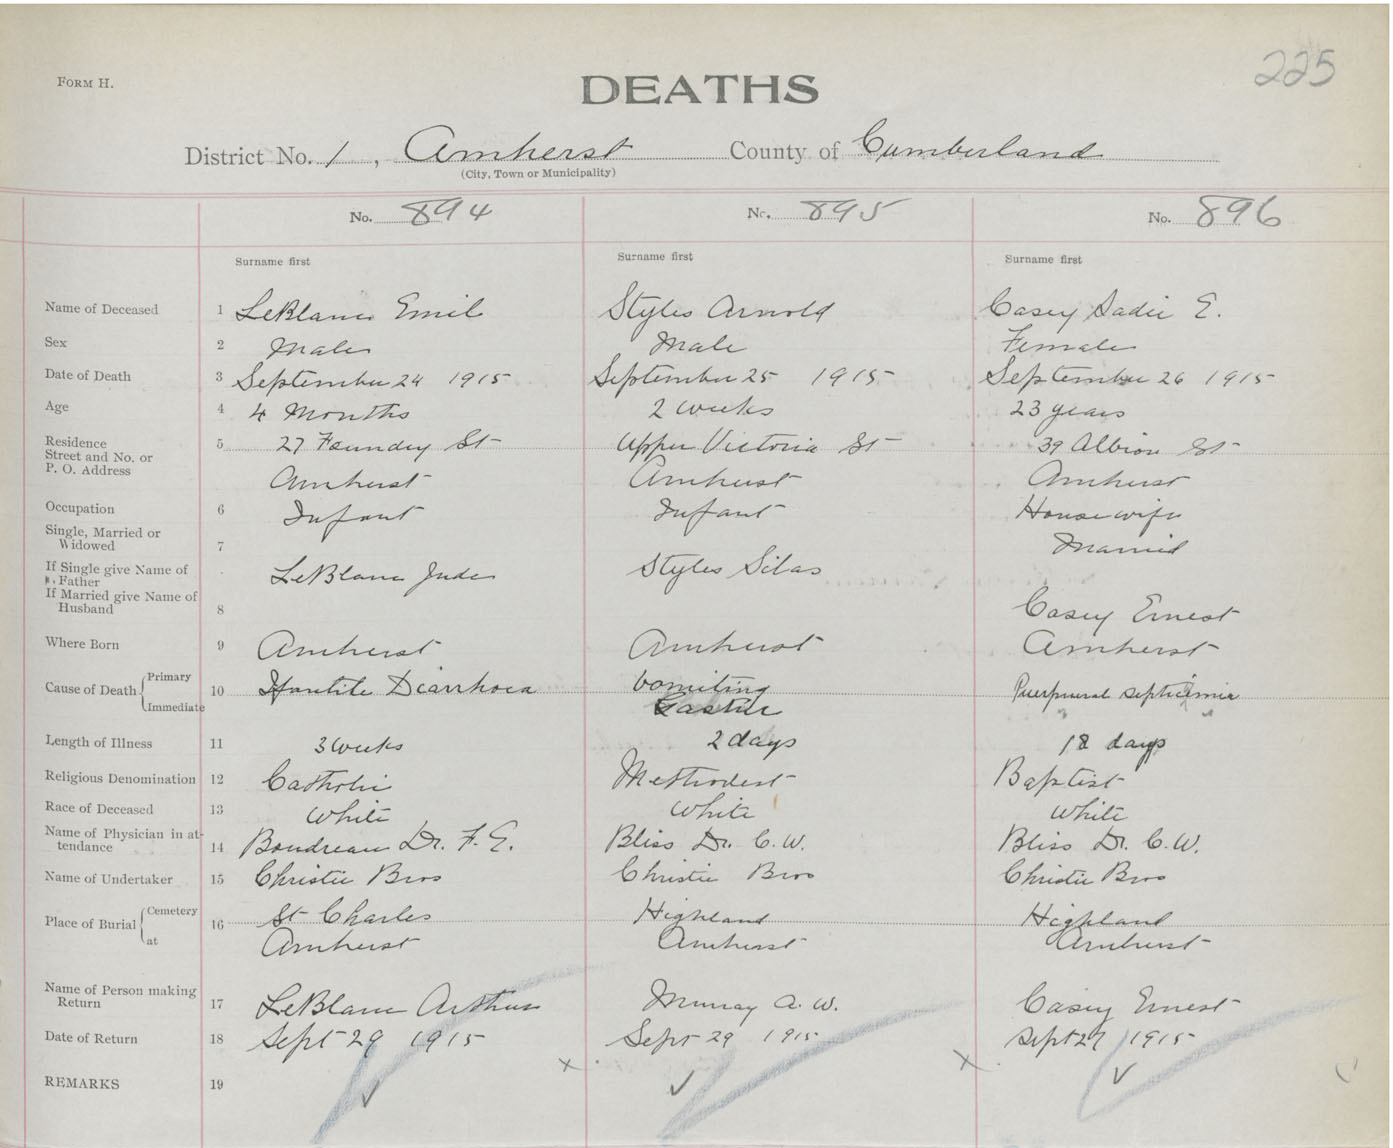 225
FORM H.
DEATHS
District No. 1, Amherst County of Cumberland
(City, Town or Municipality)
No. 894 No. 895 No. 896
Surname first Surname first Surname first
Name of Deceased 1 LeBlanc Emil Styles Arnold Casey Sadie E.
Sex 2 Male Male Female
Date of Death 3 September 24 1915 September 25 1915 September 26 1915
Age 4 4 Months 2 weeks 23 years
Residence 5 27 Foundry St Upper Victoria St 39 Albion St
Street and No. or
P. O. Address Amherst Amherst Amherst
Occupation 6 Infant Infant Housewife
Single, Married or
Widowed 7 Married
If Single give Name of
Father LeBlanc Jude Styles Silas
If Married give Name of
Husband 8 Casey Ernest
Where Born 9 Amherst Amherst Amherst
Cause of Death { Primary
10 Ifantile Diarrhoea vomiting Puerpueral septicimia
Immediate Gastric
Length of Illness 11 3 weeks 2 days 18 days
Religious Denomination 12 Catholic Methodist Baptist
Race of Deceased 13 White White White
Name of Physician in at-
tendance 14 Boudreau Dr. F. E. Bliss Dr. C. W. Bliss Dr. C. W.
Name of Undertaker 15 Christie Bros Christie Bros Christie Bros
Place of Burial { Cemetery 16 St Charles Highland Highland
at Amherst Amherst Amherst
Name of Person making
Return 17 LeBlanc Arthur Murray A. W. Casey Ernest
Date of Return 18 Sept 29 1915 Sept 29 1915 Sept 27 1915
REMARKS 19